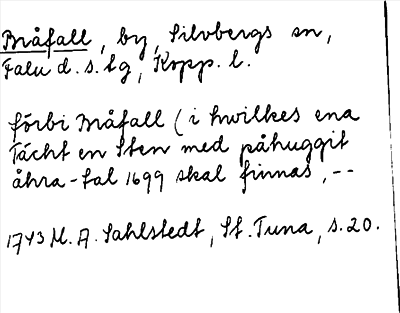 Måfall, by, Silvbergs sn,
Falu d. s. lg, Kopp. l.
förbi Måfall (i hwilkes ena
Tächt en Sten med påhuggit
åhra-tal 1699 skal finnas, --
1743 M. A. Sahlstedt, St. Tuna, s. 20.